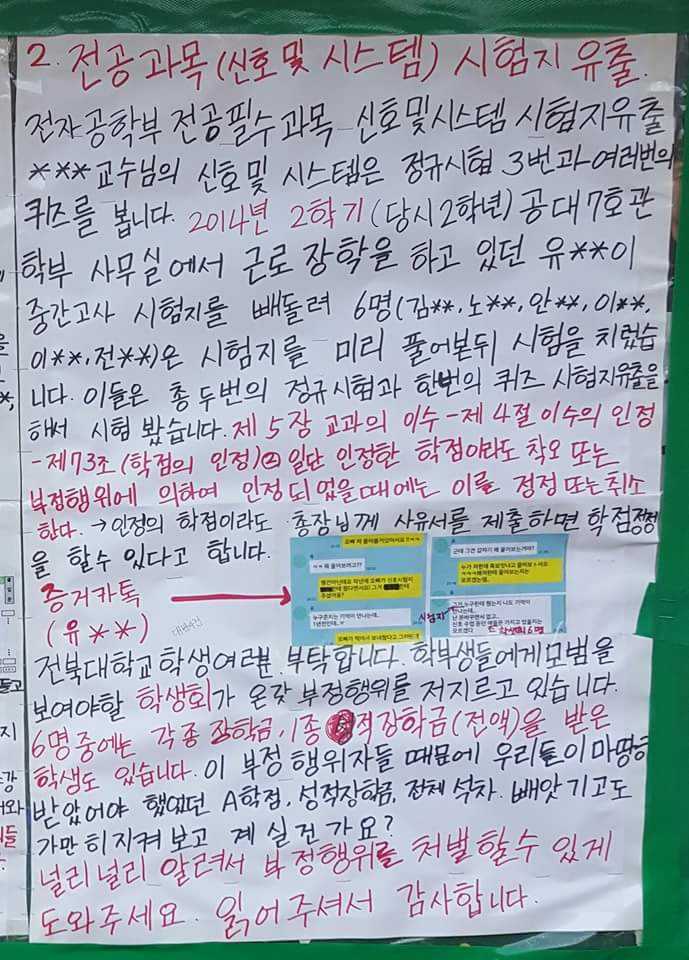 2. 전공과목(신호 및 시스템) 시험지 유출.
전자공학부 전공필수과목 신호및시스템 시험지유출
***교수님의 신호및 시스템은 정규시험 3번과 여러번의
퀴즈를 봅니다. 2014년 2학기(당시2학년) 공대7호관
학부 사무실에서 근로장학을 하고 있던 유**이
중간고사 시험지를 빼돌려 6명(김**, 노**, 안**, 이**,
이**, 전**)은 시험지를 미리 풀어본뒤 시험을 치렀습
니다. 이들은 총 두번의 정규시험과 한번의 퀴즈 시험지유출을
해서 시험 봤습니다. 제 5장 교과의 이수-제 4절 이수의 인정
-제73조(학점의 인정)② 일단 인정한 학점이라도 착오 또는
부정행위에 의하여 인정되었을때에는 이를 정정 또는 취소
한다. → 인정의 학점이라도 총장님께 사유서를 제출하면 학점정정
을 할수 있다고 합니다.
증거카톡
(유**)
오빠 저 물어볼거있어서요
ㅋㅋ 뭐 물어보려고??
누구준지는 기억이 안나는데..
근데 그건 갑자기 왜 물어보는거야?
시험지
난 프바꾸면서 없고..
모르겠다
학생회 6명
전북대학교 학생여러분. 부탁합니다. 학부생들에게 모범을
보여야할 학생회가 온갖 부정행위를 저지르고 있습니다.
6명 중에는 각종 장학금, 1종 성적장학금(전액)을 받은
학생도 있습니다. 이 부정행위자들 때문에 우리들이 마땅히
받았어야 했었던 A학점, 성적장학금, 전체 석차. 빼앗기고도
가만히 지켜보고 계실건가요?
널리널리 알려서 부정행위를 처벌할수 있게
도와주세요. 읽어주셔서 감사합니다.